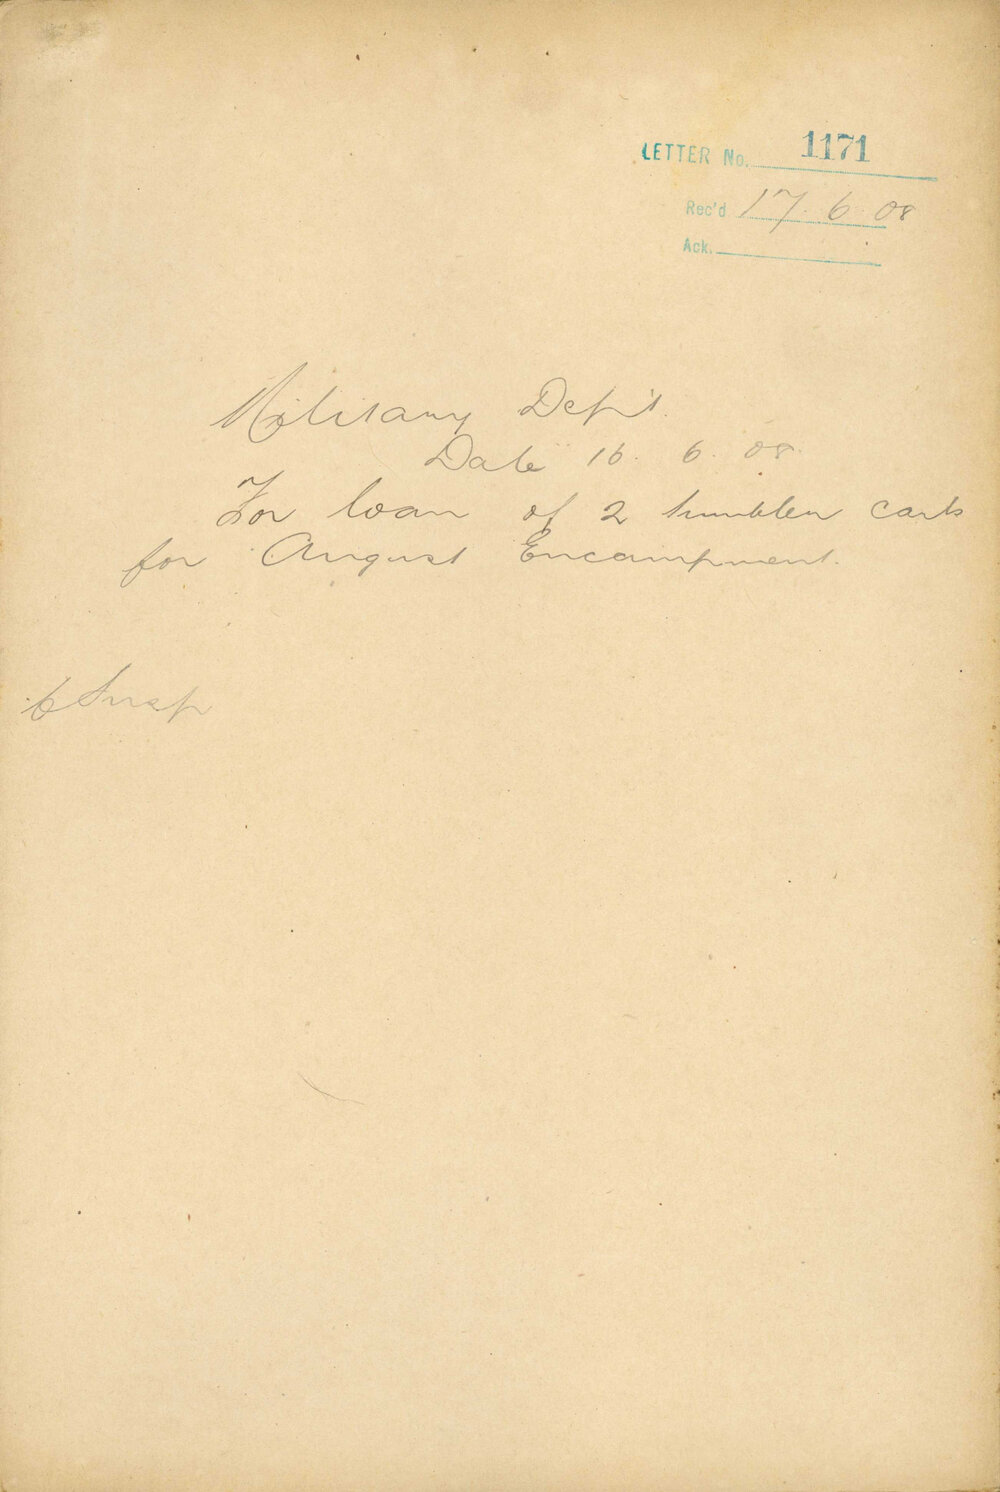 LETTER No. 1171
Rec'd 17. 6. 08
Ack.
Military Dep't.
Date 16. 6. 08.
For loan of 2 tumbler carts
for August Encampment.
C Insp